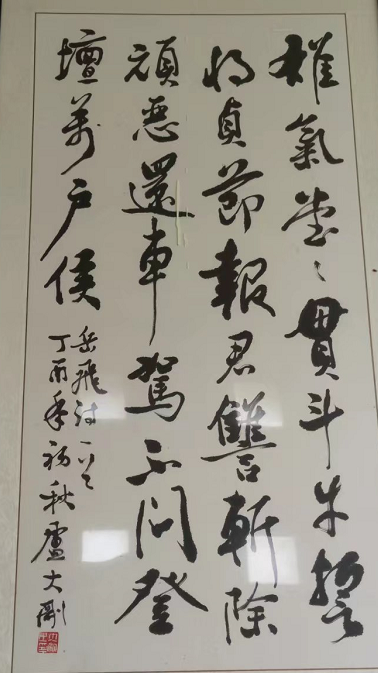 雄氣堂々貫斗牛誓
將貞節報君讐斬除
頑惡還車駕不問登
壇萬戶侯
岳飛詩一首
丁酉年初秋盧大剛